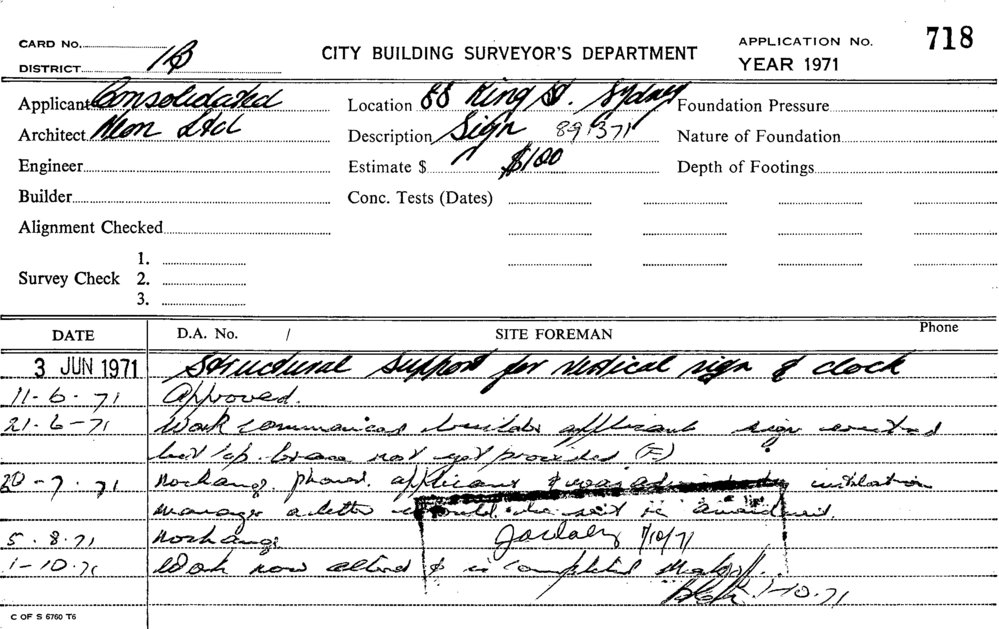 CARD No.
DISTRICT
CITY BUILDING SURVEYOR'S DEPARTMENT
APPLICATION No. 718
YEAR 1971
Applicant Consolidated
Location 88 King St. Sydney
Foundation Pressure
Architect Neon Ltd
Description Sign 891371
Nature of Foundation
Engineer
Estimate $ $100
Depth of Footings
Builder
Conc. Tests (Dates)
Alignment Checked
Survey Check
1.
2.
3.
DATE
D.A. No. /
SITE FOREMAN
Phone
3 JUN 1971 Structural support for vertical sign & clock
11-6-71 Approved.
21-6-71 Work applicants sign erected
but brace not yet provided (F)
20-7-71 No change. phoned applicant & was installation
manager a letter would be sent in amendment.
5.8.71 No change
1/10/71
1-10.71 Work now altered & is completed
1-10.71
C OF S 6760 T6